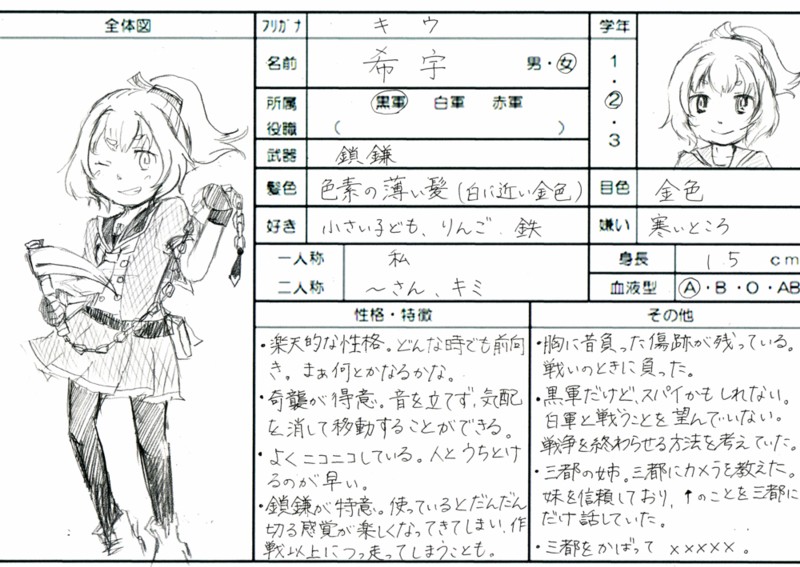 全体図
フリガナ キウ
学年
名前 希宇 男・女
1・2・3
所属 黒軍 白軍 赤軍
役職 ( )
武器 鎖鎌
髪色 色素の薄い髪(白に近い金色)
目色 金色
好き 小さい子ども、りんご、鉄
嫌い 寒いところ
一人称 私
二人称 〜さん、キミ
身長 15 cm
血液型 A・B・O・AB
性格・特徴
・楽天的な性格。どんな時でも前向
き。まぁ何とかなるかな。
・奇襲が得意。音を立てず、気配
を消して移動することができる。
・よくニコニコしている。人とうちとけ
るのが早い。
・鎖鎌が特意。使っているとだんだん
切る感覚が楽しくなってきてしまい、作
戦以上につっ走ってしまうことも。
その他
・胸に昔負った傷跡が残っている。
戦いのときに負った。
・黒軍だけど、スパイかもしれない。
白軍と戦うことを望んでいない。
戦争を終わらせる方法を考えていた。
・三都の姉。三都にカメラを教えた。
妹を信頼しており、↑のことを三都に
だけ話していた。
・三都をかばって×××××。